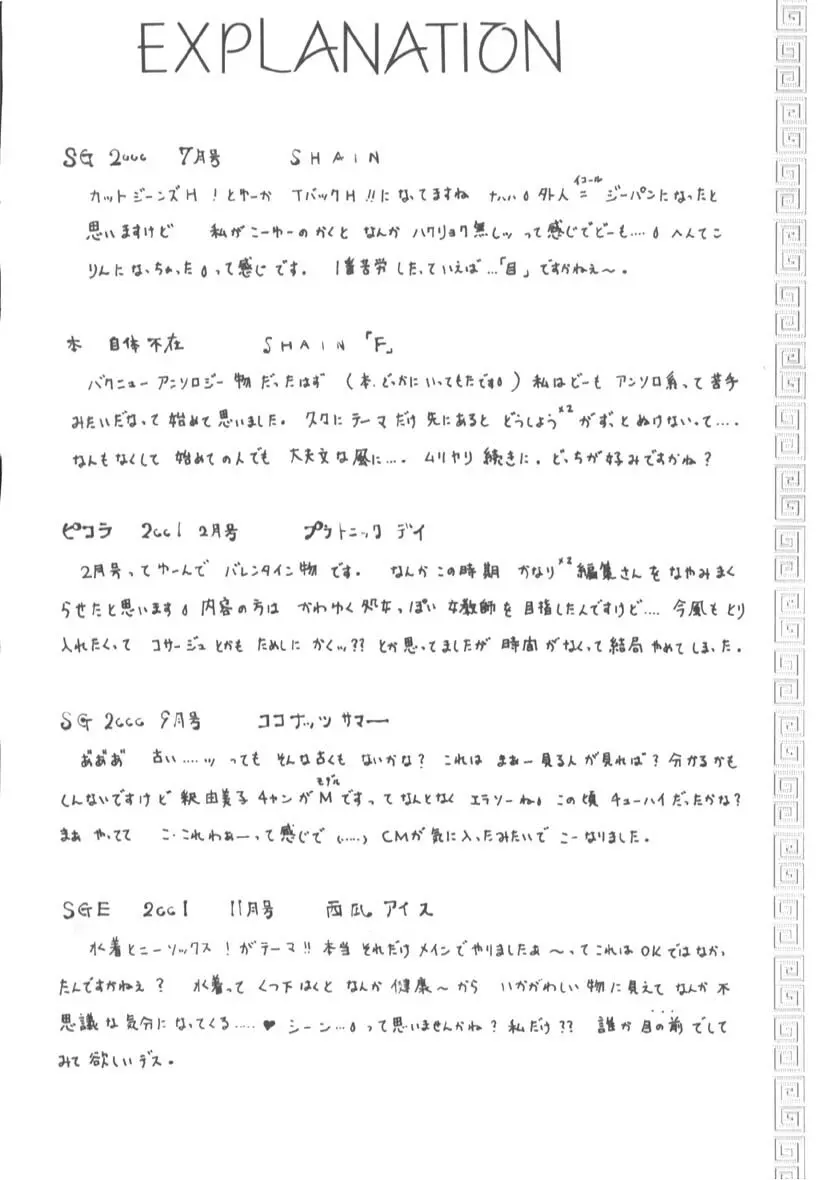 EXPLANATION
SG 2000 7月号 SHAIN
カットジーンズH!とゆーか TバックH!!になってますね ナハハ。外人＝ジーパンになったと
イコール
思いますけど 私がこーゆーのかくと なんか ハクリョク無しッ って感じでどーも....。へんてこ
りんになっちゃった。って感じです。 1番苦労したっていえば...「目」ですかねぇ〜。
本 自体不在 SHAIN「F」
バクニューアンソロジー物だったはず (本、どっかにいってもたです。) 私はどーも アンソロ系って苦手
みたいだなって始めて思いました。 久々にテーマだけ先にあると どうしよう×2がずっとぬけないって....
なんもなくして 始めての人でも 大丈夫な風に.... ムリヤリ続きに。どっちが好みですかね?
ピコラ 2001 2月号 プラトニック デイ
2月号ってゆーんで バレンタイン物です。 なんかこの時期 かなり×2編集さんをなやみまく
らせたと思います。内容の方は かわゆく処女っぽい女教師を目指したんですけど.... 今風もとり
入れたくって コサージュとかも ためしにかくッ?? とか思ってましたが 時間がなくって結局やめてしまった。
SG 2000 9月号 ココナッツ サマー
あ゛あ゛あ゛ 古い.....ッ っても そんな古くもないかな? これは まぁー見る人が見れば?分かるかも
しんないですけど 釈由美子チャンがMですってなんとなく エラソーね。この頃 チューハイだったかな?
モデル
まぁ やってて こ・これわぁーって感じで (.....) CMが気に入ったみたいで こーなりました。
SGE 2001 11月号 西瓜 アイス
水着とニーソックス!がテーマ!! 本当 それだけ メインでやりましたぁ 〜ってこれは OKではなかっ
たんですかねぇ? 水着って くつ下はくと なんか 健康〜から いかがわしい物に見えて なんか 不
思議な気分になってくる.....♥ シーン...。って思いませんかね?私だけ?? 誰か目の前でして
みて欲しいデス。